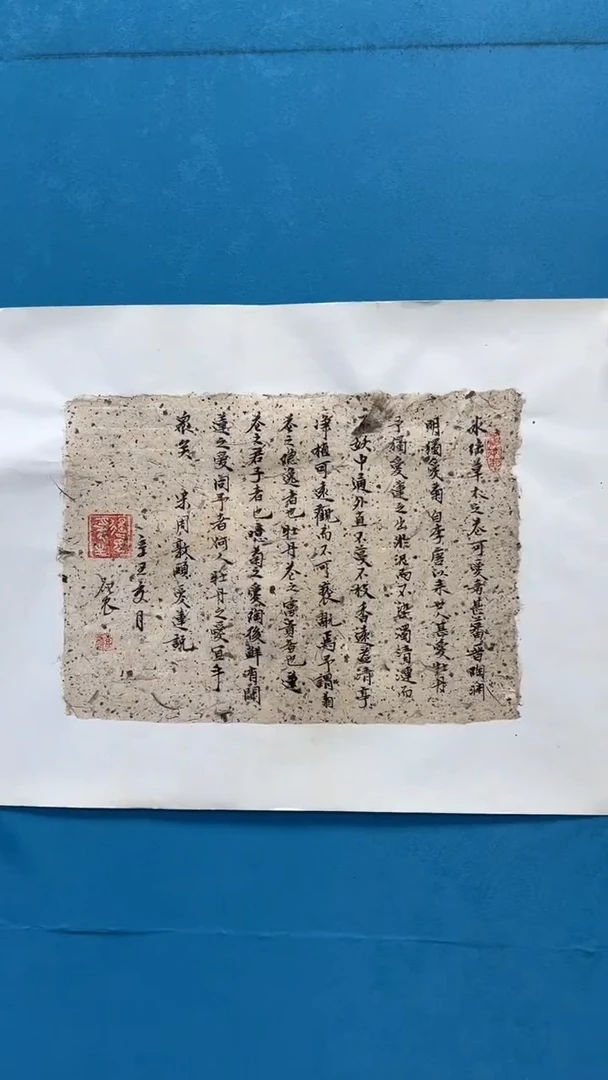 水陸草木之花可愛者甚蕃晉陶淵
明獨愛菊自李唐以来世人甚愛牡丹
予獨愛蓮之出淤泥而不染濯清漣而
不妖中通外直不蔓不枝香遠益清亭
淨植可遠觀而不可褻翫焉予謂菊
花之隱逸者也牡丹花之富貴者也蓮
花之君子者也噫菊之愛陶後鮮有聞
蓮之愛同予者何人牡丹之愛宜乎
衆矣 宋周敦頤愛蓮說
辛丑夏月